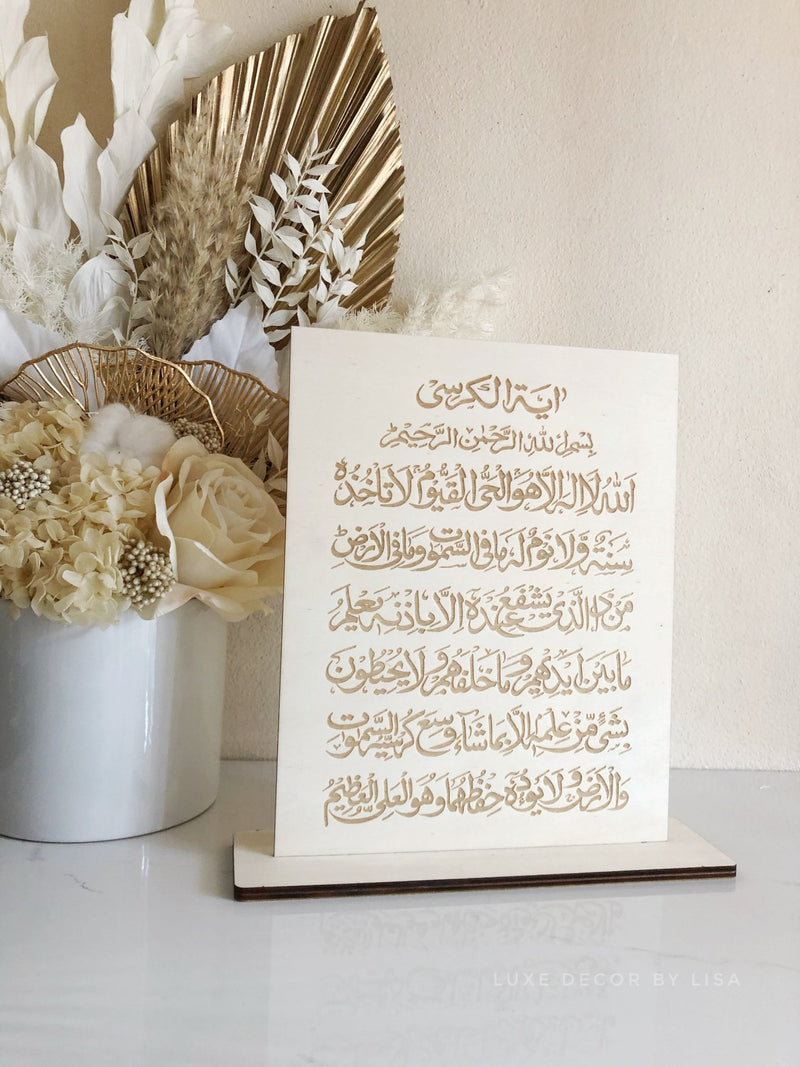 اٰية الكرسى
بِسْمِ اللّٰهِ الرَّحْمٰنِ الرَّحِيْمِ
اَللّٰهُ لَا اِلٰهَ اِلَّا هُوَ الْحَىُّ الْقَيُّوْمُ لَا تَاْخُذُهٗ
سِنَةٌ وَّلَا نَوْمٌ لَهٗ مَا فِى السَّمٰوٰتِ وَمَا فِى الْاَرْضِ
مَنْ ذَا الَّذِىْ يَشْفَعُ عِنْدَهٗ اِلَّا بِاِذْنِهٖ يَعْلَمُ
مَا بَيْنَ اَيْدِيْهِمْ وَمَا خَلْفَهُمْ وَلَا يُحِيْطُوْنَ
بِشَىْءٍ مِّنْ عِلْمِهٖ اِلَّا بِمَا شَآءَ وَسِعَ كُرْسِيُّهُ السَّمٰوٰتِ
وَالْاَرْضَ وَلَا يَـُٔوْدُهٗ حِفْظُهُمَا وَهُوَ الْعَلِىُّ الْعَظِيْمُ
LUXE DECOR BY LISA